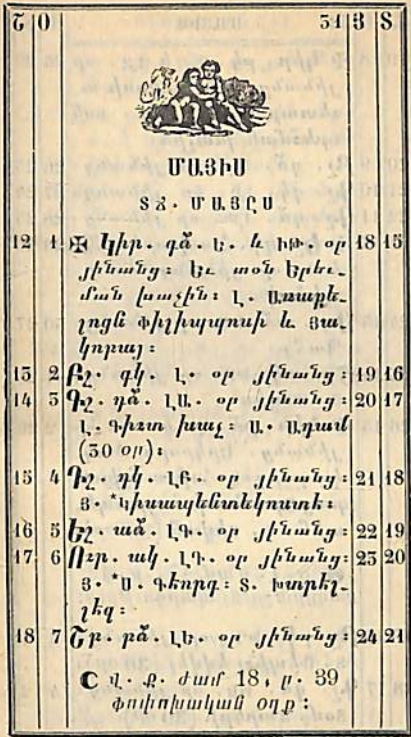 Շ Օ 31 Յ Տ
ՄԱՅԻՍ
ՏՃ. ՄԱՅԸՍ
12 1 ✠ Կիր. գձ. Ե. և ԻԹ. օր 18 15
յինանց: Եւ տօն Երևե-
ման խաչին: Լ. Առաքե-
լոցն Փիլիպպոսի և Յա-
կոբայ:
13 2 Բշ. գկ. Լ. օր յինանց: 19 16
14 3 Գշ. դձ. ԼԱ. օր յինանց: 20 17
Լ. Գիւտ խաչ: Ա. Ադամ
(30 օր):
15 4 Դշ. դկ. ԼԲ. օր յինանց: 21 18
Յ. *Կիսապենտեկոստէ:
16 5 Եշ. աձ. ԼԳ. օր յինանց: 22 19
17 6 Ուր. ակ. ԼԴ. օր յինանց: 23 20
Յ. *Ս. Գեորգ: Տ. Խտրէլ-
լէզ:
18 7 Շր. բձ. ԼԵ. օր յինանց: 24 21
☾ վ. ք. ժամ 18, ր. 39
փոփոխական օդք: